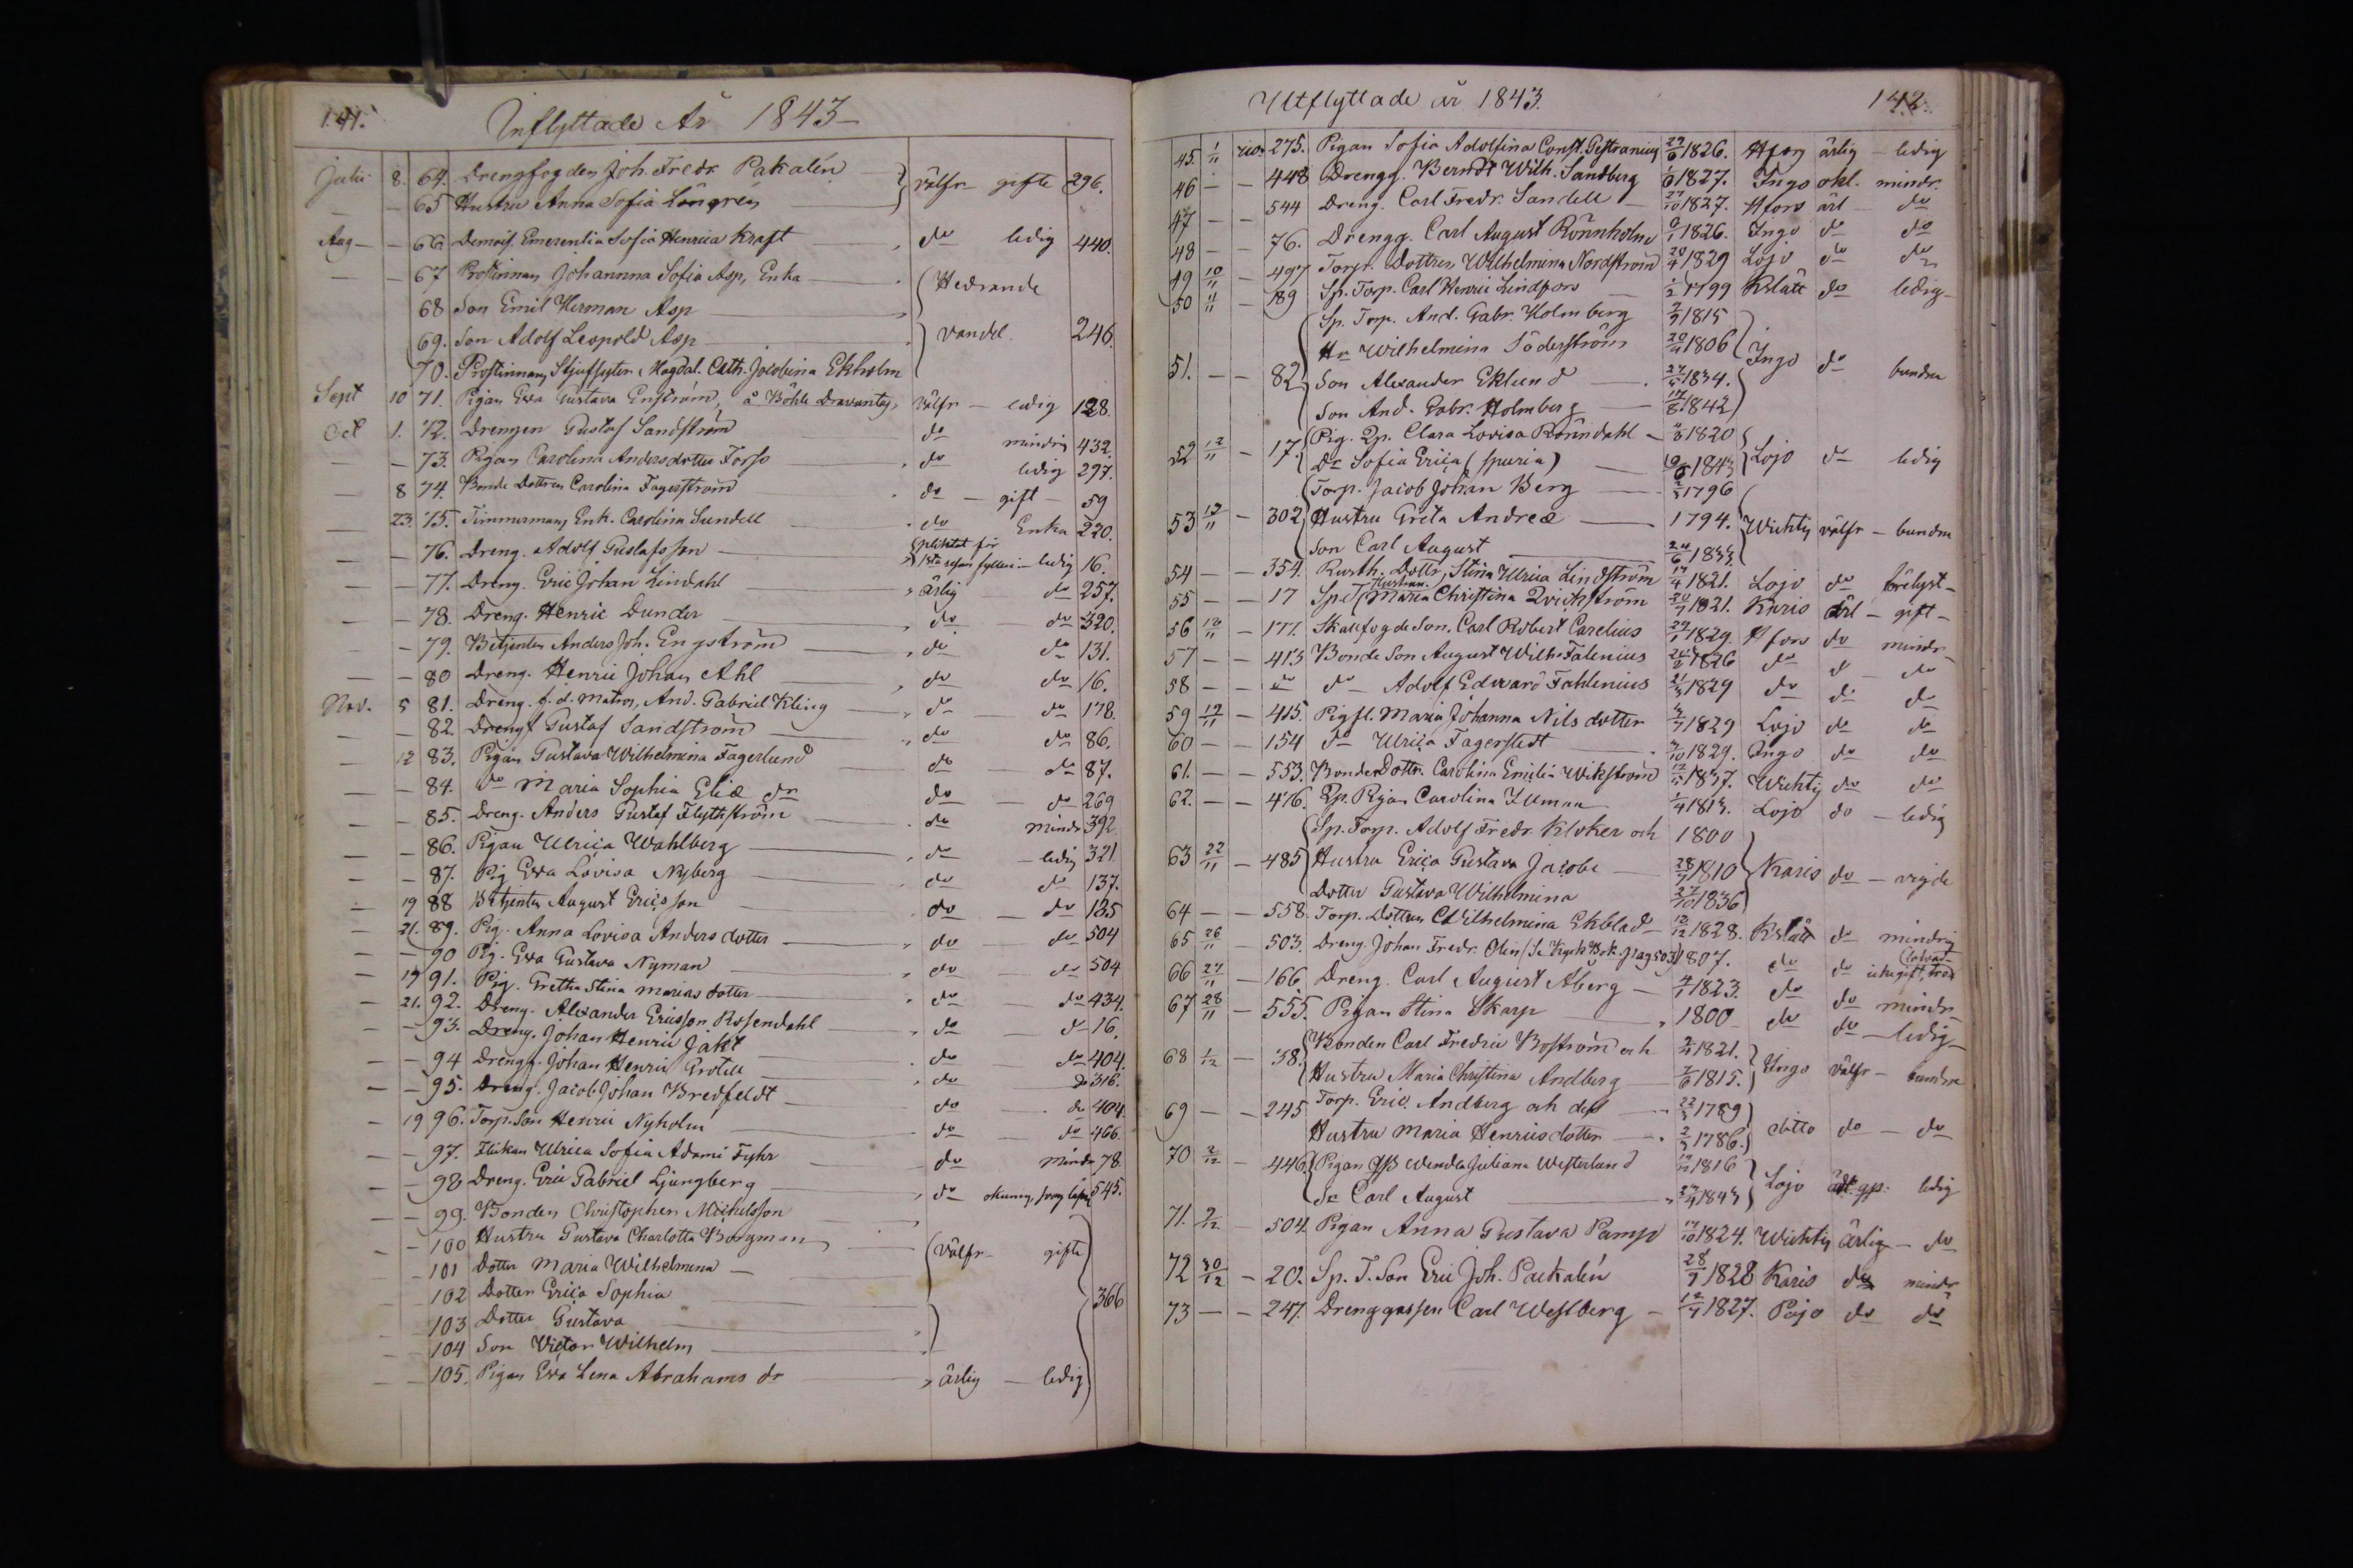 141.
Inflyttade År 1843
Julii 8. 64. Drengfogden Joh. Fredr Pakalén välfr gifte 296.
— — 65 Hustru Anna Sofia Löngrén
Aug — — 66 Demois. Emerentia Sofia Henrica Kraft do ledig 440.
— — 67 Prostinnan Johannna Sofia Asp, Enka Hedrande
68 Son Emil Herman Asp
69. Son Adolf Leopold Asp vandel. 246.
70. Prostinnans Stjufsyster Magdal. Cath. Jacobina Ekholm
Sept 10 71. Pigan Eva Gustava Enström, å Böhle välfr — ledig 128.
Oct 1. 72. Drengen Gustaf Sandström do mindrig 432.
— — 73. Pigan Carolina Andersdotter Forss do ledig 297.
— 8 74. Bonde Dottren Carolina Fagerström do — gift — 59
— 23. 75. Timmermans Enk. Carolina Sundell do Enka 220.
— — 76. Dreng. Adolf Gustafsson pliktat för 1sta resan fylleri — ledig 16.
— — 77. Dreng. Eric Johan Lindahl ärlig do 257.
— — 78. Dreng. Henric Dunder do do 320.
— — 79. Betjenten Anders Joh. Engström do do 131.
— — 80 Dreng. Henric Johan Ahl do do 16.
Nov. 5 81. Dreng. f.d. Matros, And. Gabriel Kling do do 178.
— — 82. Drengs Gustaf Sandström do do 86.
— 12 83. Pigan Gustava Wilhelmina Fagerlund do do 87.
— — 84. do Maria Sophia Eliæ dr do — do 269
— — 85. Dreng. Anders Gustaf Flythström do mindr 392
— — 86. Pigan Ulrica Wahlberg do — ledig 321
— — 87. Pig Eva Lovisa Nyberg do do 137.
— 19 88 Betjenten August Ericsson do — do 135
— 21. 89. Pig. Anna Lovisa Andersdotter do do 504
— — 90 Pig. Eva Gustava Nyman do do 504
— 19 91. Pig. Gretha Stina Mariasdotter do do 434.
— 21. 92. Dreng. Alexander Ericsson Rosendahl do do 16.
— — 93. Dreng. Johan Henric Jakt do do 404.
— — 94 Drengs. Johan Henric Grotell do do 316.
— — 95. Dreng. Jacob Johan Bredfeldt do do 404.
— 19 96. Torp. Son Henric Nyholm do do 466.
— — 97. Flickan Ulrica Sofia Adami Fyhr do mindr 78
— — 98 Dreng. Eric Gabriel Ljungberg do okunnig, svag läsn 545.
— — 99. Bonden Christopher Michelsson
— — 100 Hustru Gustava Charlotta Borgman välfr gifte
— 101 Dotter Maria Wilhelmina
102 Dotter Erica Sophia 366
— 103 Dotter Gustava
— — 104 Son Victor Wilhelm
— — 105. Pigan Eva Lena Abrahams dr ärlig — ledig
Utflyttade år 1843.
142.
45. 1/11 275. Pigan Sofia Adolfina Const. 29/6 1826. Hfors ärlig — ledig
46 — — 448 Drengg. Berndt Wilh. Sandberg 1827. Ingo okl. mindr.
47 — — 544 Dreng. Carl Fredr. Sandell 27/10 1827. Hfors ärl — do
48 — — 76. Drengg. Carl August Rönnholm 1826. Ingo do do
49 10/11 — 497 Torpr. Dottren Wilhelmina Nordström 20/4 1829 Lojo do do
50 11/11 — 189 Sp. Torp. Carl Henric Lindfors 1/2 1799 Kslätt do ledig
Sp. Torp. And. Gabr. Holmberg 1815
Hu Wilhelmina Söderström 1806 Ingo do bundne
51. — — 82 Son Alexander Eklund 1834.
Son And. Gabr. Holmberg 17/8 1842
52 12/11 — 17. Pig. Qp. Clara Lovisa Rönndahl 1820
Dr Sofia Erica (spuria) 1843 Lojo do ledig
Torp. Jacob Johan Berg 1796
53 12/11 — 302 Hustru Greta Andreæ 1794. Wichtis välfr — bundne
Son Carl August 24/6 1833.
54 — — 354. Rusth. Dottr, Stina Ulrica Lindström 17/4 1821. Lojo do förlyst
55 — — 17 Sp. T. Hustrun Maria Christina Qvickström 20/7 1821. Karis ärl — gift —
56 12/11 — 177. Skallfogde Son. Carl Robert Carelius 29/1 1829. Hfors do mindr
57 — — 413 Bonde Son August Wilh. Falenius 1826 do do do
58 — — do do — Adolf Edvard Fahlenius 21/3 1829 do do do
59 19/11 — 415. Pigfl. Maria Johanna Nilsdotter 1829 Lojo do do
60 — — 154 do Ulrica Fagerstedt 1829. Ingo do do
61. — — 553. Bonde Dottr. Carolina Emilia Wikström 1837. Wichtis do do
62. — — 476. Qp. Pigan Carolina Juman 1813. Lojo do — ledig
Sp. Torp. Adolf Fredr. Kloker och 1800
63 22/11 — 485 Hustru Erica Gustava Jacobi 28/7 1810 Karis do — vigde
Dotter Gustava Wilhelmina 27/10 1836
64 — — 558. Torp. Dottren Wilhelmina Ekblad 12/12 1828. Kslätt do mindrig
65 26/11 — 503. Dreng. Johan Fredr. Olin (Se Kyrk Bok. pag 503) 1807. do do icke gift,
66 27/11 — 166. Dreng. Carl August Åberg 4/1 1823. do do mindr
67 28/11 — 555. Pigan Stina Skarp 1800 do do — ledig
68 1/12 — 38. Bonden Carl Fredric Boström och 1821.
Hustru Maria Christina Andberg 1815. Ingo välfr — bundne
69 — — 245 Torp. Eric. Andberg och dess 22/3 1789
Hustru Maria Henricsdotter 2/3 1786. ditto do — do
70 2/12 — 446. Pigan Wendla Juliana Westerlund 1816
Sn Carl August 1843 Lojo qp. ledig
71. 9/12 — 504. Pigan Anna Gustava Pamp 1824. Wichtis ärlig — do
72 30/12 — 20. Sp. T. Son Eric Joh. Packalén 28/7 1828 Karis do mindr
73 — — 247. Drenggossen Carl Westberg 1827. Pojo do do